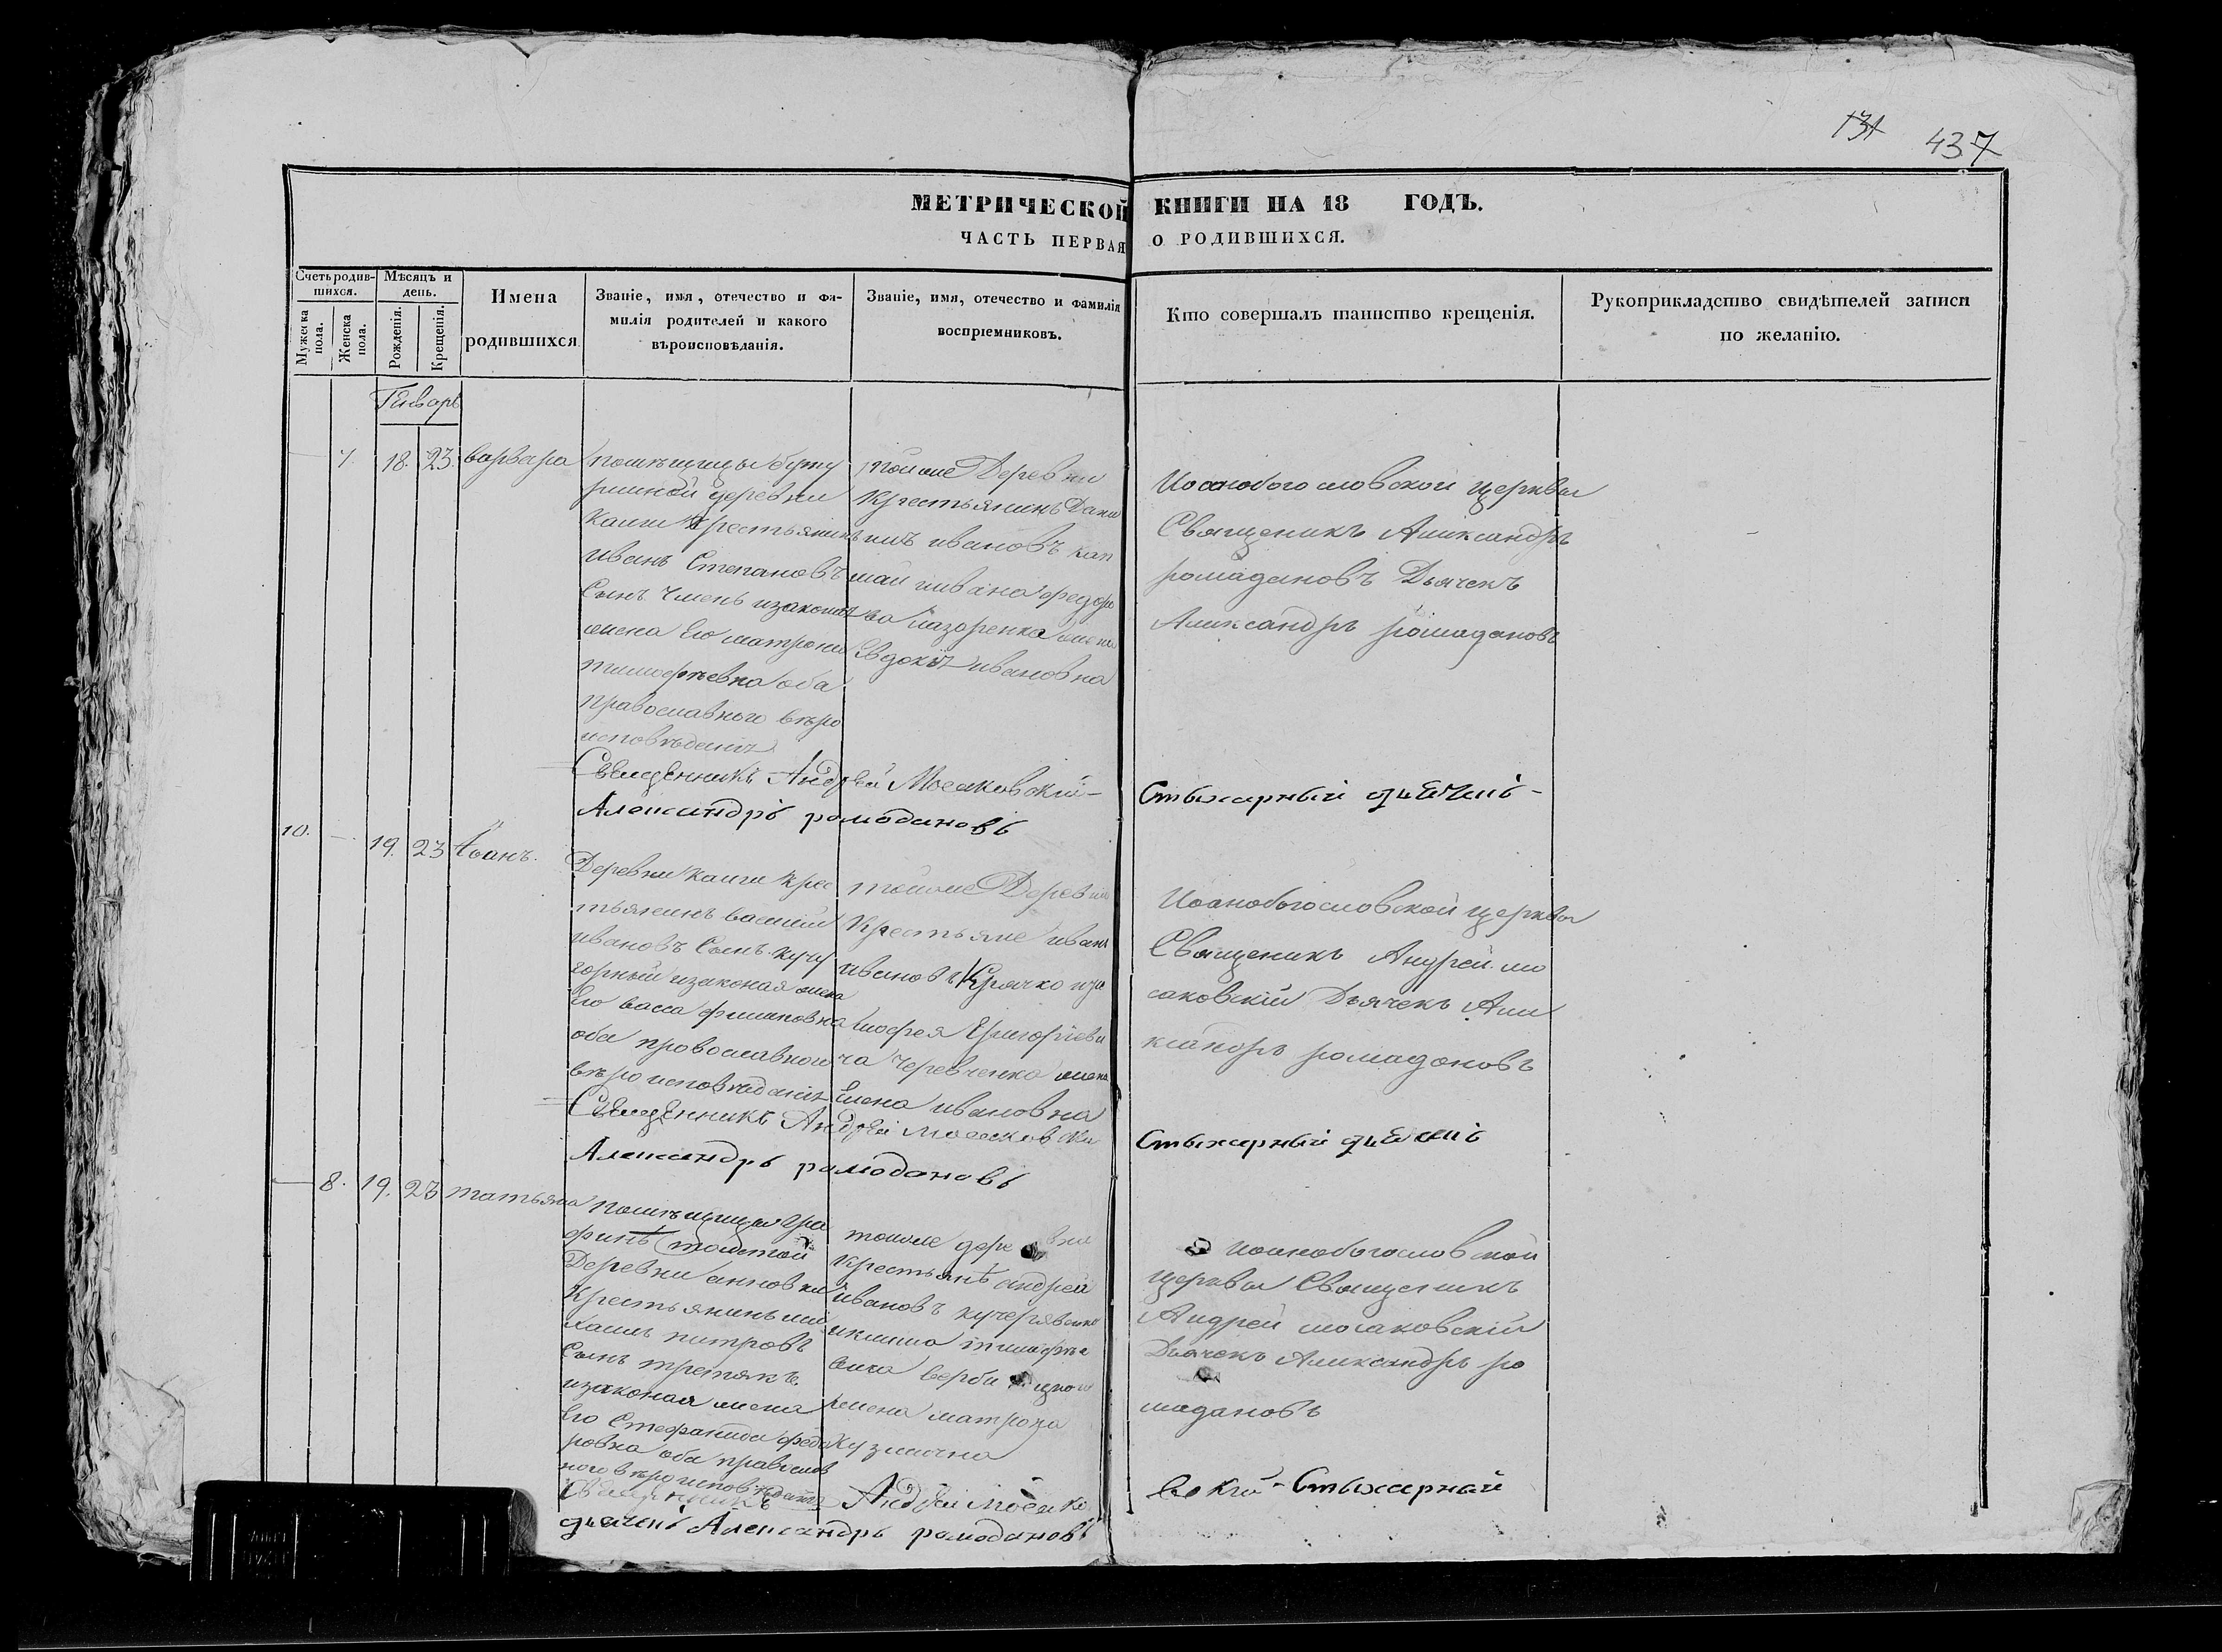 131 437
МЕТРИЧЕСКОЙ КНИГИ НА 18 ГОДЪ.
ЧАСТЬ ПЕРВАЯ О РОДИВШИХСЯ.
Счетъ родив-
шихся.
Мужеска
пола.
Женска
пола.
Мѣсяцъ и
день.
Рожденія.
Крещенія.
Имена
родившихся
Званіе, имя, отечество и фа-
милія родителей и какого
вѣроисповѣданія.
Званіе, имя, отечество и фамилія
воспріемниковъ.
Кто совершалъ таинство крещенія.
Рукоприкладство свидѣтелей записи
по желанію.
Генварь
7. 18. 23. варвара
помѣщицы буту
рлиной деревни
Крестьянинъ
иванъ Степановъ
Сынъ изаконая
жена Его матрона
тимофѣевна оба
православного вѣро
исповѣданія
тойже Деревни
Крестьянинъ Дани
илъ ивановъ
ивана федоро
ва лазоренка жена
Евдокія ивановна
Иоанобогословской церквы
Священикъ Александръ
ромадановъ Дьячекъ
Александръ ромадановъ
Священникъ Андрей Мосаковскій-
Александръ ромодановъ
Стыхарный дьячекъ-
10. 19. 23 Иванъ.
Деревни Крес
тьянинъ василий
ивановъ Сынъ кучу
горный изаконая жена
Его васса филиповна
оба провославного
вѣроисповѣданія
тойже Деревни
Крестьяне иванъ
ивановъ Крячко
Григорьеви
ча Черевченка жена
Елена ивановна
Иоанобогословской церквы
Священикъ Андрей мо
саковскій Дьячекъ Але
ксандръ ромадановъ
Священникъ Андрей мосаковски
Александръ ромодановъ
Стыхарный дьячекъ
8. 19. 23 татьяна
помѣщицы гра
финѣ толстой
Деревни анновки
Крестьянинъ ми
хаилъ питровъ
Сынъ третякъ
изаконая жена
Его Стефанида федо
ровна оба правослов
ного вѣроисповѣданія
тойже деревни
крестьянѣ андрей
ивановъ кучерявенко
матрона
кузмична
Иоанобогословской
церквы Священикъ
Андрей мосаковскій
Дьячекъ Александръ ро
мадановъ
Священникъ Андрей Мосако
вскій - Стыхарный
дьячекъ Александръ ромодановъ